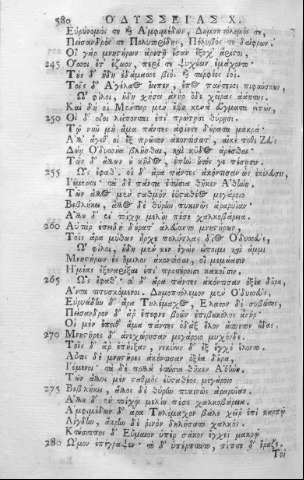 580 ΟΔΥΣΣΕΙΑΣ Χ.
Εὐρύνομός τε καὶ Ἀμφιμέδων, Δημοπτόλεμός τε,
Πείσανδρός τε Πολυκτορίδης, Πόλυβός τε δαΐφρων.
Οἱ γὰρ μνηστήρων ἀρετῇ ἔσαν ἔξοχ' ἄριστοι
245 Ὅσσοι ἔτ' ἔζωον, περί τε ψυχέων ἐμάχοντο·
Τοὺς δ' ἤδη ἐδάμασσε βιὸς καὶ ταρφέες ἰοί.
Τοῖς δ' Ἀγέλαος ἔειπεν, ἔπος πάντεσσι πιφαύσκων,
Ὦ φίλοι, ἤδη σχήσει ἀνὴρ ὅδε χεῖρας ἀάπτους.
Καὶ δή οἱ Μέντωρ μὲν ἔβη κενὰ εὔγματα εἰπών·
250 Οἱ δ' οἶοι λείπονται ἐπὶ πρώτῃσι θύρῃσι.
Τῷ νῦν μὴ ἅμα πάντες ἀφίετε δούρατα μακρά·
Ἀλλ' ἄγεθ' οἱ ἓξ πρῶτον ἀκοντίσατ', αἴ κέ ποθι Ζεὺς
Δώῃ Ὀδυσσῆα βλῆσθαι, καὶ κῦδος ἀρέσθαι·
Τῶν δ' ἄλλων οὐ κῆδος, ἐπὴν οὗτός γε πέσῃσιν.
255 Ὣς ἔφαθ'· οἱ δ' ἄρα πάντες ἀκόντισαν ὡς ἐκέλευσεν,
Ἱέμενοι· τὰ δὲ πάντα ἐτώσια θῆκεν Ἀθήνη.
Τῶν ἄλλος μὲν σταθμὸν ἐϋσταθέος μεγάροιο
Βεβλήκει, ἄλλος δὲ θύρην πυκινῶς ἀραρυῖαν·
Ἄλλου δ' ἐν τοίχῳ μελίη πέσε χαλκοβάρεια.
260 Αὐτὰρ ἐπειδὴ δούρατ' ἀλεύαντο μνηστήρων,
Τοῖς ἄρα μύθων ἦρχε πολύτλας δῖος Ὀδυσσεύς,
Ὦ φίλοι, ἤδη μέν κεν ἐγὼν εἴποιμι καὶ ἄμμι
Μνηστήρων ἐς ὅμιλον ἀκοντίσαι, οἳ μεμάασιν
Ἡμέας ἐξεναρίξαι ἐπὶ προτέροισι κακοῖσιν.
265 Ὣς ἔφαθ'· οἱ δ' ἄρα πάντες ἀκόντισαν ὀξέα δοῦρα,
Ἄντα τιτυσκόμενοι. Δημοπτόλεμον μὲν Ὀδυσσεύς,
Εὐρυάδην δ' ἄρα Τηλέμαχος, Ἔλατον δὲ συβώτης,
Πείσανδρον δ' ἄρ' ἔπεφνε βοῶν ἐπιβουκόλος ἀνήρ·
Οἱ μὲν ἔπειθ' ἅμα πάντες ὀδὰξ ἕλον ἄσπετον οὖδας·
270 Μνηστῆρες δ' ἀνεχώρησαν μεγάροιο μυχόνδε·
Τοὶ δ' ἄρ' ἐπήϊξαν, νεκύων δ' ἐξ ἔγχε' ἕλοντο.
Αὖτις δὲ μνηστῆρες ἀκόντισαν ὀξέα δοῦρα,
Ἱέμενοι· τὰ δὲ πολλὰ ἐτώσια θῆκεν Ἀθήνη.
Τῶν ἄλλος μὲν σταθμὸν ἐϋσταθέος μεγάροιο
275 Βεβλήκει, ἄλλος δὲ θύρην πυκινῶς ἀραρυῖαν·
Ἄλλου δ' ἐν τοίχῳ μελίη πέσε χαλκοβάρεια.
Ἀμφιμέδων δ' ἄρα Τηλέμαχον βάλε χεῖρ' ἐπὶ καρπῷ
Λίγδην, ἄκρον δὲ ῥινὸν δηλήσατο χαλκός.
Κτήσιππος δ' Εὔμαιον ὑπὲρ σάκος ἔγχεϊ μακρῷ
280 Ὦμον ἐπέγραψεν· τὸ δ' ὑπέρπτατο, πῖπτε δ' ἔραζε.
Τοὶ